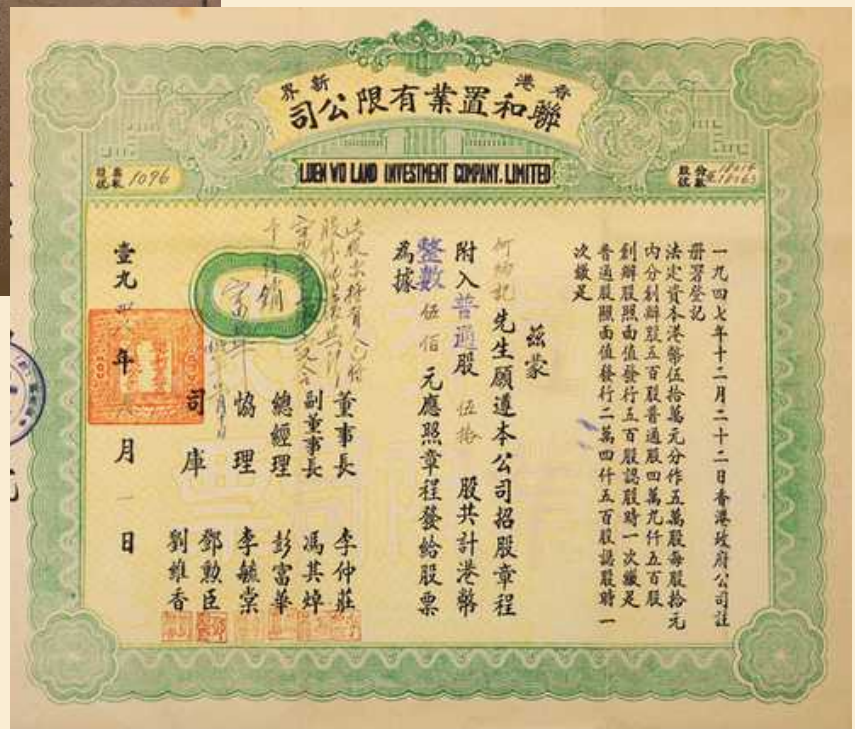 香港 新界
聯和置業有限公司
LUEN WO LAND INVESTMENT COMPANY. LIMITED
股票號數 1096
股份號數
一九四七年十二月二十二日香港政府公司註
冊署登記
法定資本港幣伍拾萬元分作五萬股每股拾元
內分創辦股五百股普通股四萬九仟五百股
創辦股照面值發行五百股認股時一次繳足
普通股照面值發行二萬四仟五百股認股時一
次繳足
茲蒙
先生願遵本公司招股章程
附入普通股 伍拾 股共計港幣
整數 伍佰 元應照章程發給股票
為據
董事長 李仲莊
副董事長 馮其焯
總經理 彭富華
協理 李毓棠
鄧勲臣
司庫 劉維香
壹九 年 月一日